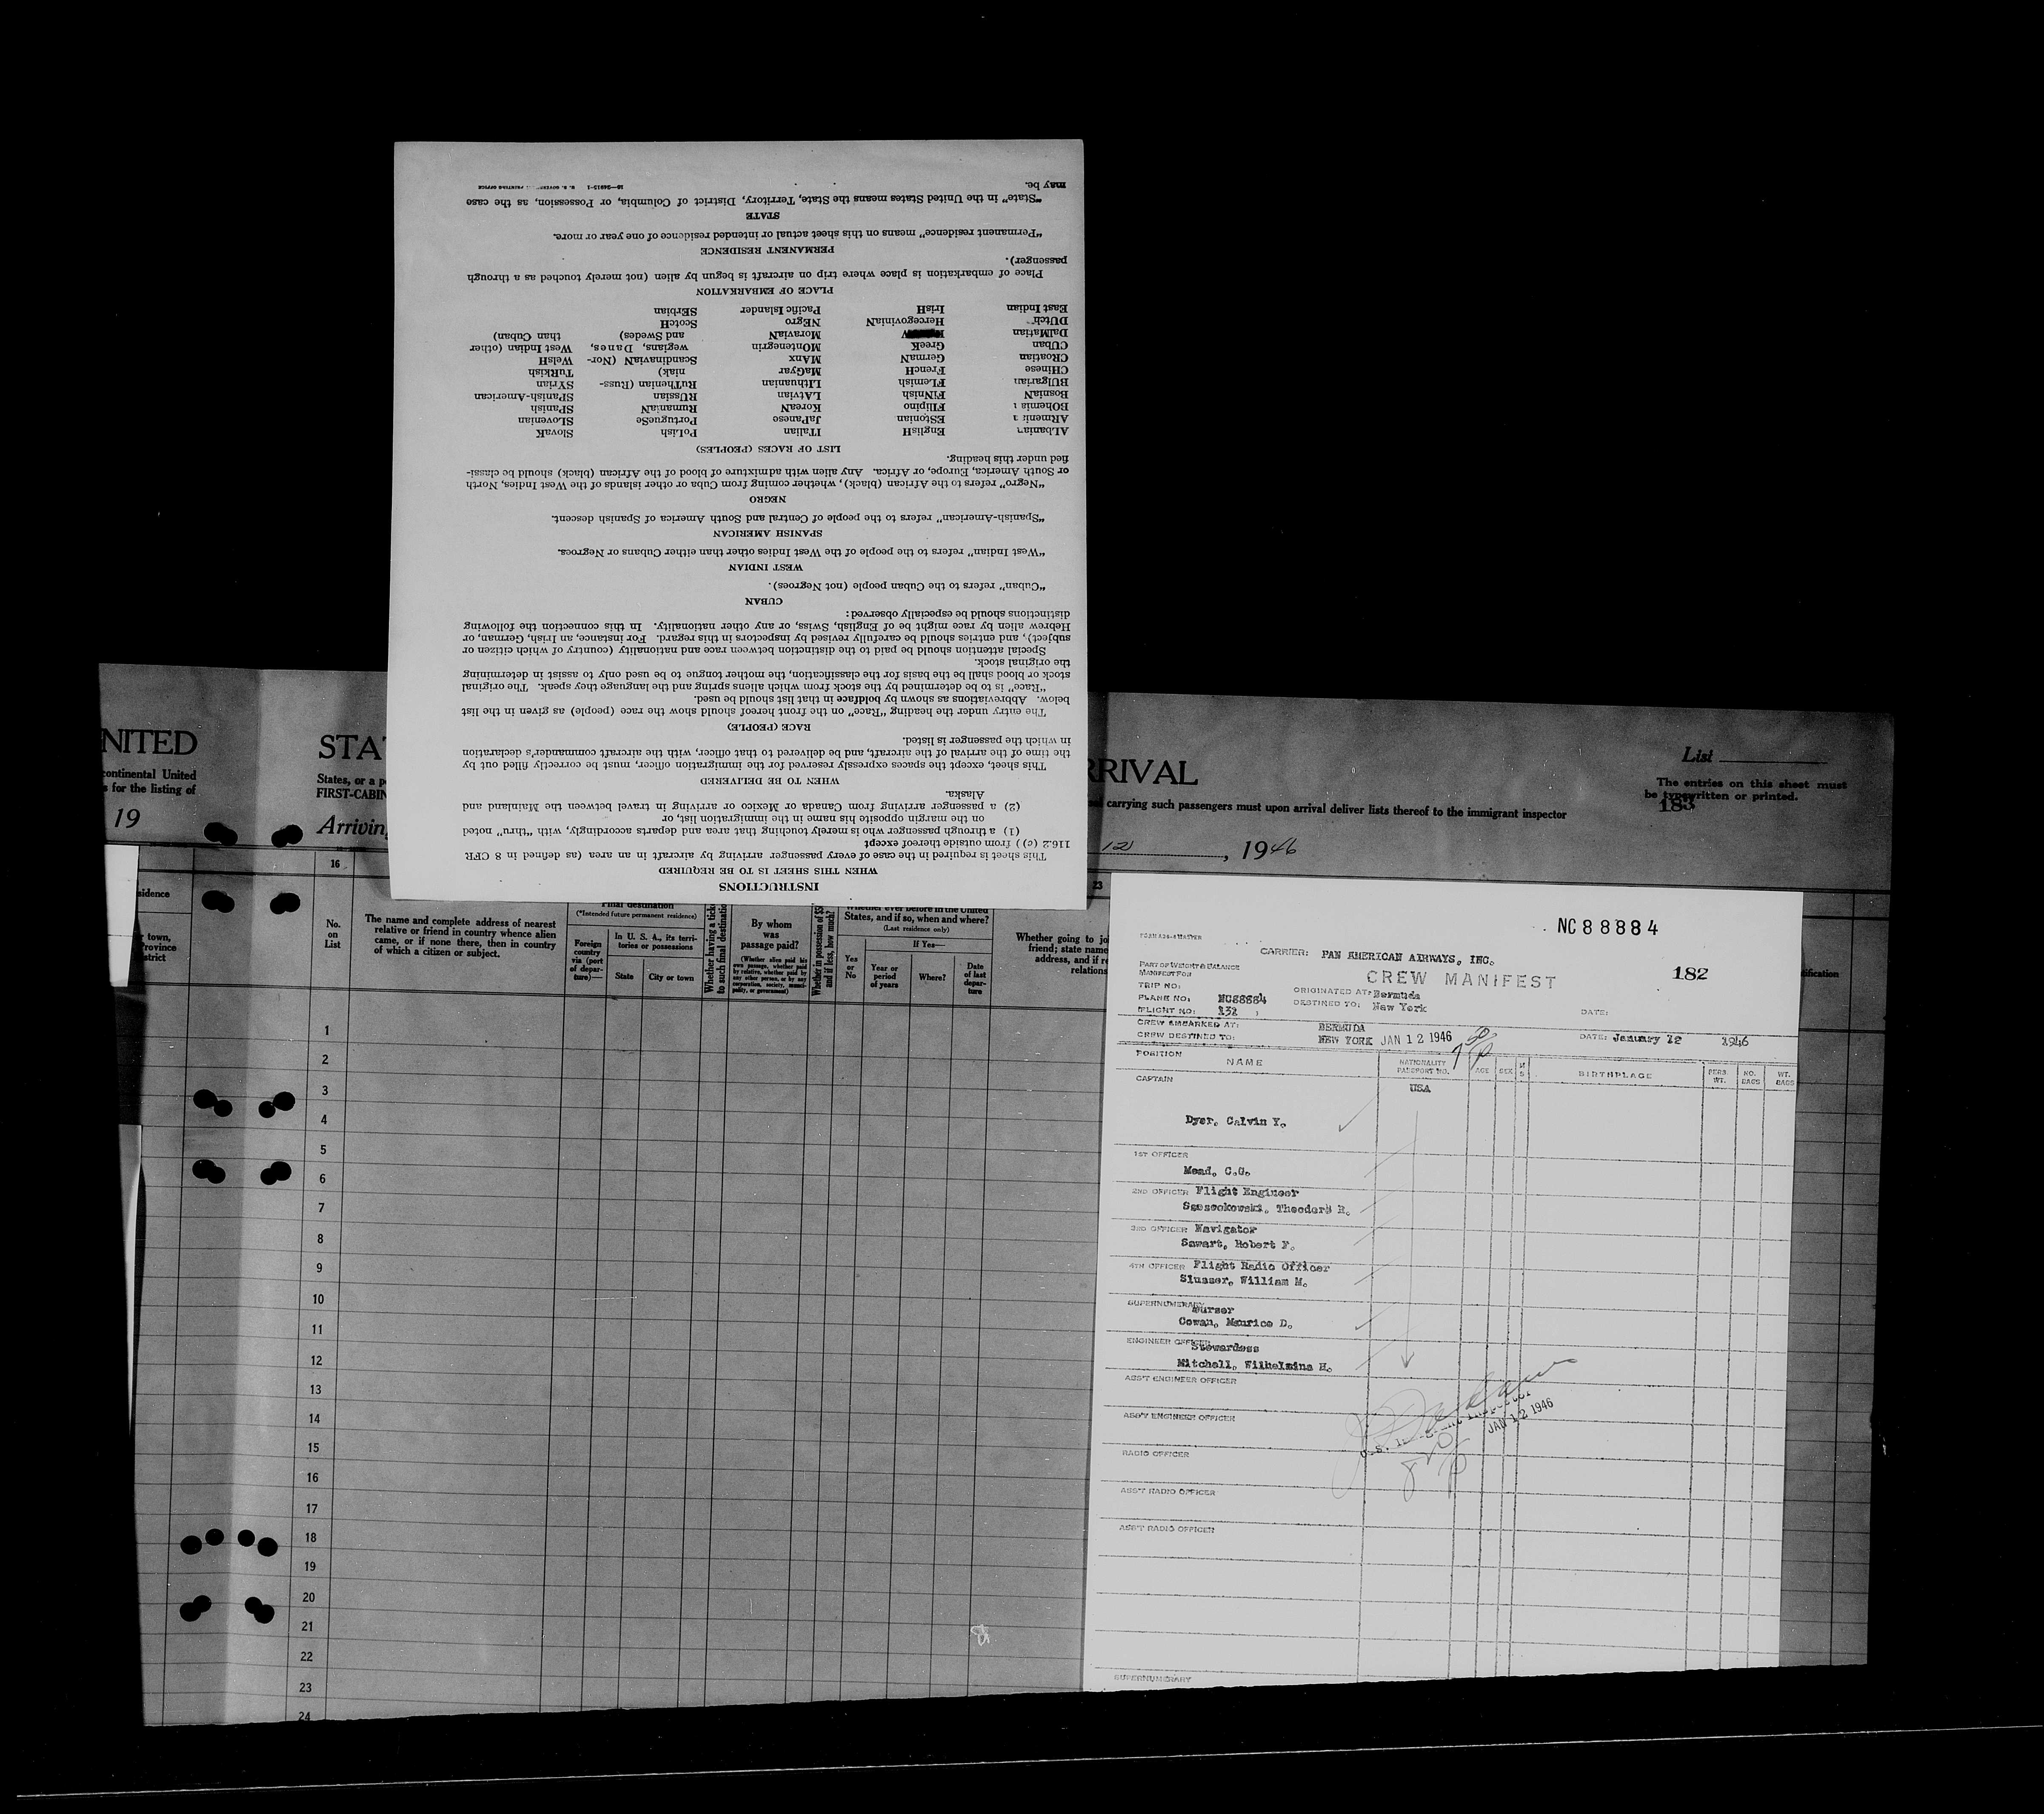 INSTRUCTIONS
WHEN THIS SHEET IS TO BE REQUIRED
This sheet is required in the case of every passenger arriving by aircraft in an area (as defined in 8 CFR
116.2 (c)) from outside thereof except
(1) a through passenger who is merely touching that area and departs accordingly, with "thru" noted
on the margin opposite his name in the immigration list, or
(2) a passenger arriving from Canada or Mexico or arriving in travel between the Mainland and
Alaska.
WHEN TO BE DELIVERED
This sheet, except the spaces expressly reserved for the immigration officer, must be correctly filled out by
the time of the arrival of the aircraft, and be delivered to that officer, with the aircraft commander's declaration
in which the passenger is listed.
RACE (PEOPLE)
The entry under the heading "Race" on the front hereof should show the race (people) as given in the list
below. Abbreviations as shown by boldface in that list should be used.
"Race" is to be determined by the stock from which aliens spring and the language they speak. The original
stock or blood shall be the basis for the classification, the mother tongue to be used only to assist in determining
the original stock.
Special attention should be paid to the distinction between race and nationality (country of which citizen or
subject), and entries should be carefully revised by inspectors in this regard. For instance, an Irish, German, or
Hebrew alien by race might be of English, Swiss, or any other nationality. In this connection the following
distinctions should be especially observed:
CUBAN
"Cuban" refers to the Cuban people (not Negroes).
WEST INDIAN
"West Indian" refers to the people of the West Indies other than either Cubans or Negroes.
SPANISH AMERICAN
"Spanish-American" refers to the people of Central and South America of Spanish descent.
NEGRO
"Negro" refers to the African (black), whether coming from Cuba or other islands of the West Indies, North
or South America, Europe, or Africa. Any alien with admixture of blood of the African (black) should be classi-
fied under this heading.
LIST OF RACES (PEOPLES)
ALbanian EnglisH ITalian PoLish SlovaK
ARmenia EStonian JaPanese PortugueSe SLOvenian
BOhemia FIlipino KoreaN RumaniaN SPanish
BosniaN FiNnish LAtvian RUssian SPanish-American
BUlgarian FLemish LIthuanian RuThenian (Russ- SYrian
CHinese FrencH MaGyar niak) TuRkish
CRoatian GermaN MAnx ScandinaviaN (Nor- WelsH
CUban GreeK MOntenegrin wegians, Danes, West Indian (other
DalMatian MoraviaN and Swedes) than Cuban)
DUtch HercegoviniaN NEgro ScotcH
East Indian IrisH Pacific Islander SErbian
PLACE OF EMBARKATION
Place of embarkation is place where trip on aircraft is begun by alien (not merely touched as a through
passenger).
PERMANENT RESIDENCE
"Permanent residence" means on this sheet actual or intended residence of one year or more.
STATE
"State" in the United States means the State, Territory, District of Columbia, or Possession, as the case
may be.
16—24915-1 U. S. GOVERNMENT PRINTING OFFICE
NITED
STA
RRIVAL
List
continental United
s for the listing of
States, or a p
FIRST-CABIN
carrying such passengers must upon arrival deliver lists thereof to the immigrant inspector
The entries on this sheet must
be typewritten or printed.
183
19
Arriving
12, 1946
16
23
sidence
r town,
rovince
strict
No.
on
List
The name and complete address of nearest
relative or friend in country whence alien
came, or if none there, then in country
of which a citizen or subject.
Final destination
(*Intended future permanent residence)
Foreign
country
via (port
of depar-
ture)—
In U. S. A., its terri-
tories or possessions
State
City or town
Whether having a ticke
to such final destination
By whom
was
passage paid?
(Whether alien paid his
own passage, whether paid
by relative, whether paid by
any other person, or by any
corporation, society, munici-
pality, or government)
Whether in possession of $5
and if less, how much?
Whether ever before in the United
States, and if so, when and where?
(Last residence only)
Yes
or
No
If Yes—
Year or
period
of years
Where?
Date
of last
depar-
ture
Whether going to jo
friend; state name
address, and if re
relations
tification
1
2
3
4
5
6
7
8
9
10
11
12
13
14
15
16
17
18
19
20
21
22
23
24
NC88884
CARRIER: PAN AMERICAN AIRWAYS, INC.
CREW MANIFEST
182
PART OF WEIGHT & BALANCE
MANIFEST FOR
TRIP NO:
PLANE NO: NC88884
FLIGHT NO: 131
ORIGINATED AT: Bermuda
DESTINED TO: New York
DATE:
CREW EMBARKED AT: BERMUDA
CREW DESTINED TO: NEW YORK JAN 12 1946
DATE: January 12 1946
POSITION
NAME
NATIONALITY
PASSPORT NO.
AGE
SEX
M
S
BIRTHPLACE
PERS
WT.
NO.
BAGS
WT.
BAGS
CAPTAIN
USA
Dyer, Calvin Y.
1ST OFFICER
Mead, C.G.
2ND OFFICER Flight Engineer
Theodore R.
3RD OFFICER Navigator
Sawart, Robert F.
4TH OFFICER Flight Radio Officer
Slusser, William M.
SUPERNUMERARY Purser
Cowan, Maurice D.
ENGINEER OFFICER Stewardess
Mitchell, Wilhelmina H.
ASS'T ENGINEER OFFICER
ASS'T ENGINEER OFFICER
JAN 12 1946
RADIO OFFICER
ASS'T RADIO OFFICER
ASS'T RADIO OFFICER
SUPERNUMERARY